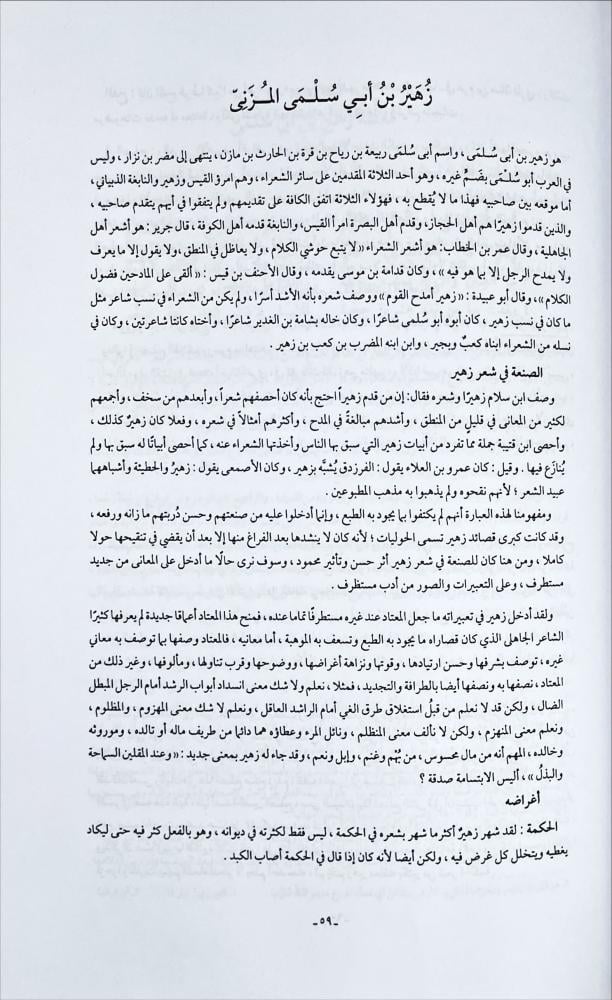 زُهَيْرُ بْنُ أبِي سُلْمَى المُزَنِيّ
هو زهير بن أبى سُلمَى ، واسم أبى سُلمَى ربيعة بن رياح بن قرة بن الحارث بن مازن ، ينتهى إلى مضر بن نزار ، وليس
فى العرب أبو سُلْمَى بضَمٍّ غيره ، وهو أحد الثلاثة المقدمين على سائر الشعراء ، وهم امرؤ القيس وزهير والنابغة الذبيانى ،
أما موقعه بين صاحبيه فهذا ما لا يُقطع به ، فهؤلاء الثلاثة اتفق الكافة على تقديمهم ولم يتفقوا فى أيهم يتقدم صاحبيه ،
والذين قدموا زهيرًا هم أهل الحجاز، وقدم أهل البصرة امرأ القيس، والنابغة قدمه أهل الكوفة ، قال جرير : هو أشعر أهل
الجاهلية ، وقال عمر بن الخطاب: هو أشعر الشعراء «لا يتبع حوشي الكلام ، ولا يعاظل في المنطق ،ولا يقول إلا ما يعرف
ولا يمدح الرجل إلا بما هو فيه » ، وكان قدامة بن موسى يقدمه ، وقال الأحنف بن قيس : « ألقى على المادحين فضول
الكلام »، وقال أبو عبيدة : « زهير أمدح القوم » ووصف شعره بأنه الأشد أسرًا ، ولم يكن من الشعراء فى نسب شاعر مثل
ما كان فى نسب زهير ، كان أبوه أبو سُلمى شاعرًا ، وكان خاله بشامة بن الغدير شاعرًا ، وأختاه كانتا شاعرتين ، وكان فى
نسله من الشعراء ابناه كعبٌ وبجير ، وابن ابنه المضرب بن كعب بن زهير .
الصنعة في شعر زهير
وصف ابن سلام زهيرًا وشعره فقال: إن من قدم زهيراً احتج بأنه كان أحصفهم شعراً ، وأبعدهم من سخف ، وأجمعهم
لكثير من المعانى فى قليلٍ من المنطق ، وأشدهم مبالغةً في المدح ، وأكثرهم أمثالاً في شعره ، وفعلا كان زهيرٌ كذلك ،
وأحصى ابن قتيبة جملة مما تفرد من أبيات زهير التي سبق بها الناس وأخذتها الشعراء عنه ، كما أحصى أبياتًا له سبق بها ولم
يُنازَع فيها . وقيل : كان عمرو بن العلاء يقول : الفرزدق يُشبَّه بزهير ، وكان الأصمعى يقول : زهيرٌ والحطيئة وأشباههما
عبيد الشعر ؛ لأنهم نقحوه ولم يذهبوا به مذهب المطبوعين .
ومفهومنا لهذه العبارة أنهم لم يكتفوا بما يجود به الطبع ، وإنما أدخلوا عليه من صنعتهم وحسن دُربتهم ما زانه ورفعه ،
وقد كانت كبرى قصائد زهير تسمى الحوليات ؛ لأنه كان لا ينشدها بعد الفراغ منها إلا بعد أن يقضي في تنقيحها حولا
كاملا ، ومن هنا كان للصنعة في شعر زهير أثر حسن وتأثير محمود ، وسوف نرى حالًا ما أدخل على المعانى من جديد
مستطرف ، وعلى التعبيرات والصور من أدب مستظرف .
ولقد أدخل زهير في تعبيراته ما جعل المعتاد عند غيره مستطرفًا تماما عنده ، فمنح هذا المعتاد أعماقا جديدة لم يعرفها كثيرًا
الشاعر الجاهلى الذي كان قصاراه ما يجود به الطبع وتسعف به الموهبة ، أما معانيه ، فالمعتاد وصفها بما توصف به معاني
غيره ، توصف بشرفها وحسن ارتيادها ، وقوتها ونزاهة أغراضها ، ووضوحها وقرب تناولها ، ومألوفها ، وغير ذلك من
المعتاد ، نصفها به ونصفها أيضا بالطرافة والتجديد ، فمثلا ، نعلم ولا شك معنى انسداد أبواب الرشد أمام الرجل المبطل
الضال ، ولكن قد لا نعلم من قبلُ استغلاق طرق الغي أمام الراشد العاقل ، ونعلم لا شك معنى المهزوم ، والمظلوم ،
ونعلم معنى المنهزم ، ولكن لا نألف معنى المنظلم ، ونائل المرء وعطاؤه هما دائما من طريف ماله أو تالده ، وموروثه
وخالده ، المهم أنه من مال محسوس ، من بُهْم وغنم ، وإبل ونعم ، وقد جاء له زهير بمعنى جديد : « وعند المقلين السماحة
والبذلُ » ، أليس الابتسامة صدقة ؟
أغراضه
الحكمة : لقد شهر زهيرٌ أكثر ما شهر بشعره في الحكمة ، ليس فقط لكثرته في ديوانه ، وهو بالفعل كثر فيه حتى ليكاد
يغطيه ويتخلل كل غرض فيه ، ولكن أيضا لأنه كان إذا قال في الحكمة أصاب الكبد .
-٥٩-